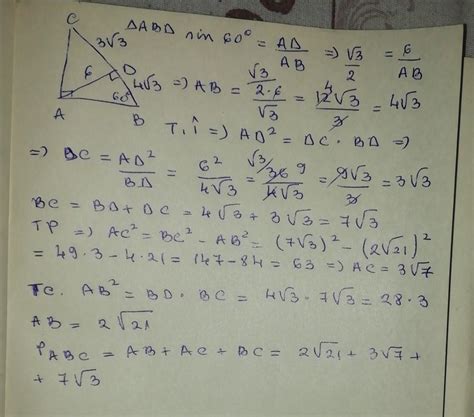 C
3√3
6
D
4√3
60°
A
B
ΔABD sin 60° = AD/AB ⇒ √3/2 = 6/AB
⇒ AB = 2·6/√3 = 12√3/3 = 4√3
T.Î ⇒ AD² = DC · BD ⇒
⇒ DC = AD²/BD = 6²/4√3 = 36/4√3 = 9√3/3 = 3√3
BC = BD + DC = 4√3 + 3√3 = 7√3
TP ⇒ AC² = BC² - AB² = (7√3)² - (2√21)²
= 49·3 - 4·21 = 147 - 84 = 63 ⇒ AC = 3√7
TC. AB² = BD · BC = 4√3 · 7√3 = 28·3
AB = 2√21
P ABC = AB + AC + BC = 2√21 + 3√7 +
+ 7√3